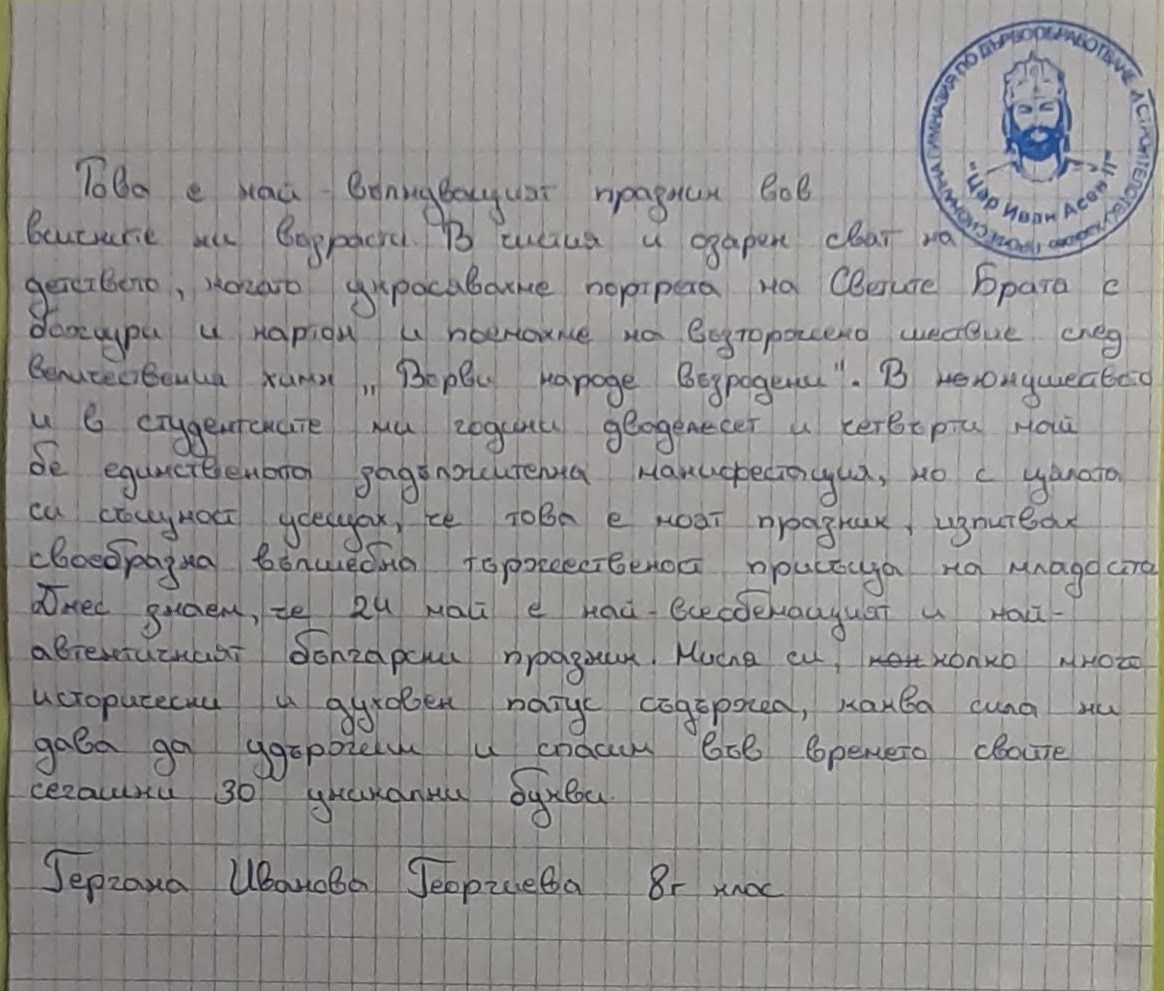 ПРОФЕСИОНАЛНА ГИМНАЗИЯ ПО ДЪРВООБРАБОТВАНЕ И СТРОИТЕЛСТВО
"Цар Иван Асен II"
Това е най-вълнуващият празник във
всичките ми възрасти. В чистия и озарен сват на
детството, когато украсявахме портрета на Светите Братя с
божури и картон и поемахме на възторжено шествие след
величествения химн „Върви народе възродени". В неюнушеството
и в студентските ми години двадесет и четвърти май
бе единствената задължителна манифестация, но с цялата
си същност усещах, че това е моят празник, изпитвах
своеобразна вълшебна тържественост присъща на младостта
Днес знаем, че 24 май е най-всеобемащият и най-
автентичният български празник. Мисля си, колко много
исторически и духовен патус съдържа, каква сила ни
дава да удържим и спасим във времето своите
сегашни 30 уникални букви.
Гергана Иванова Георгиева 8г клас